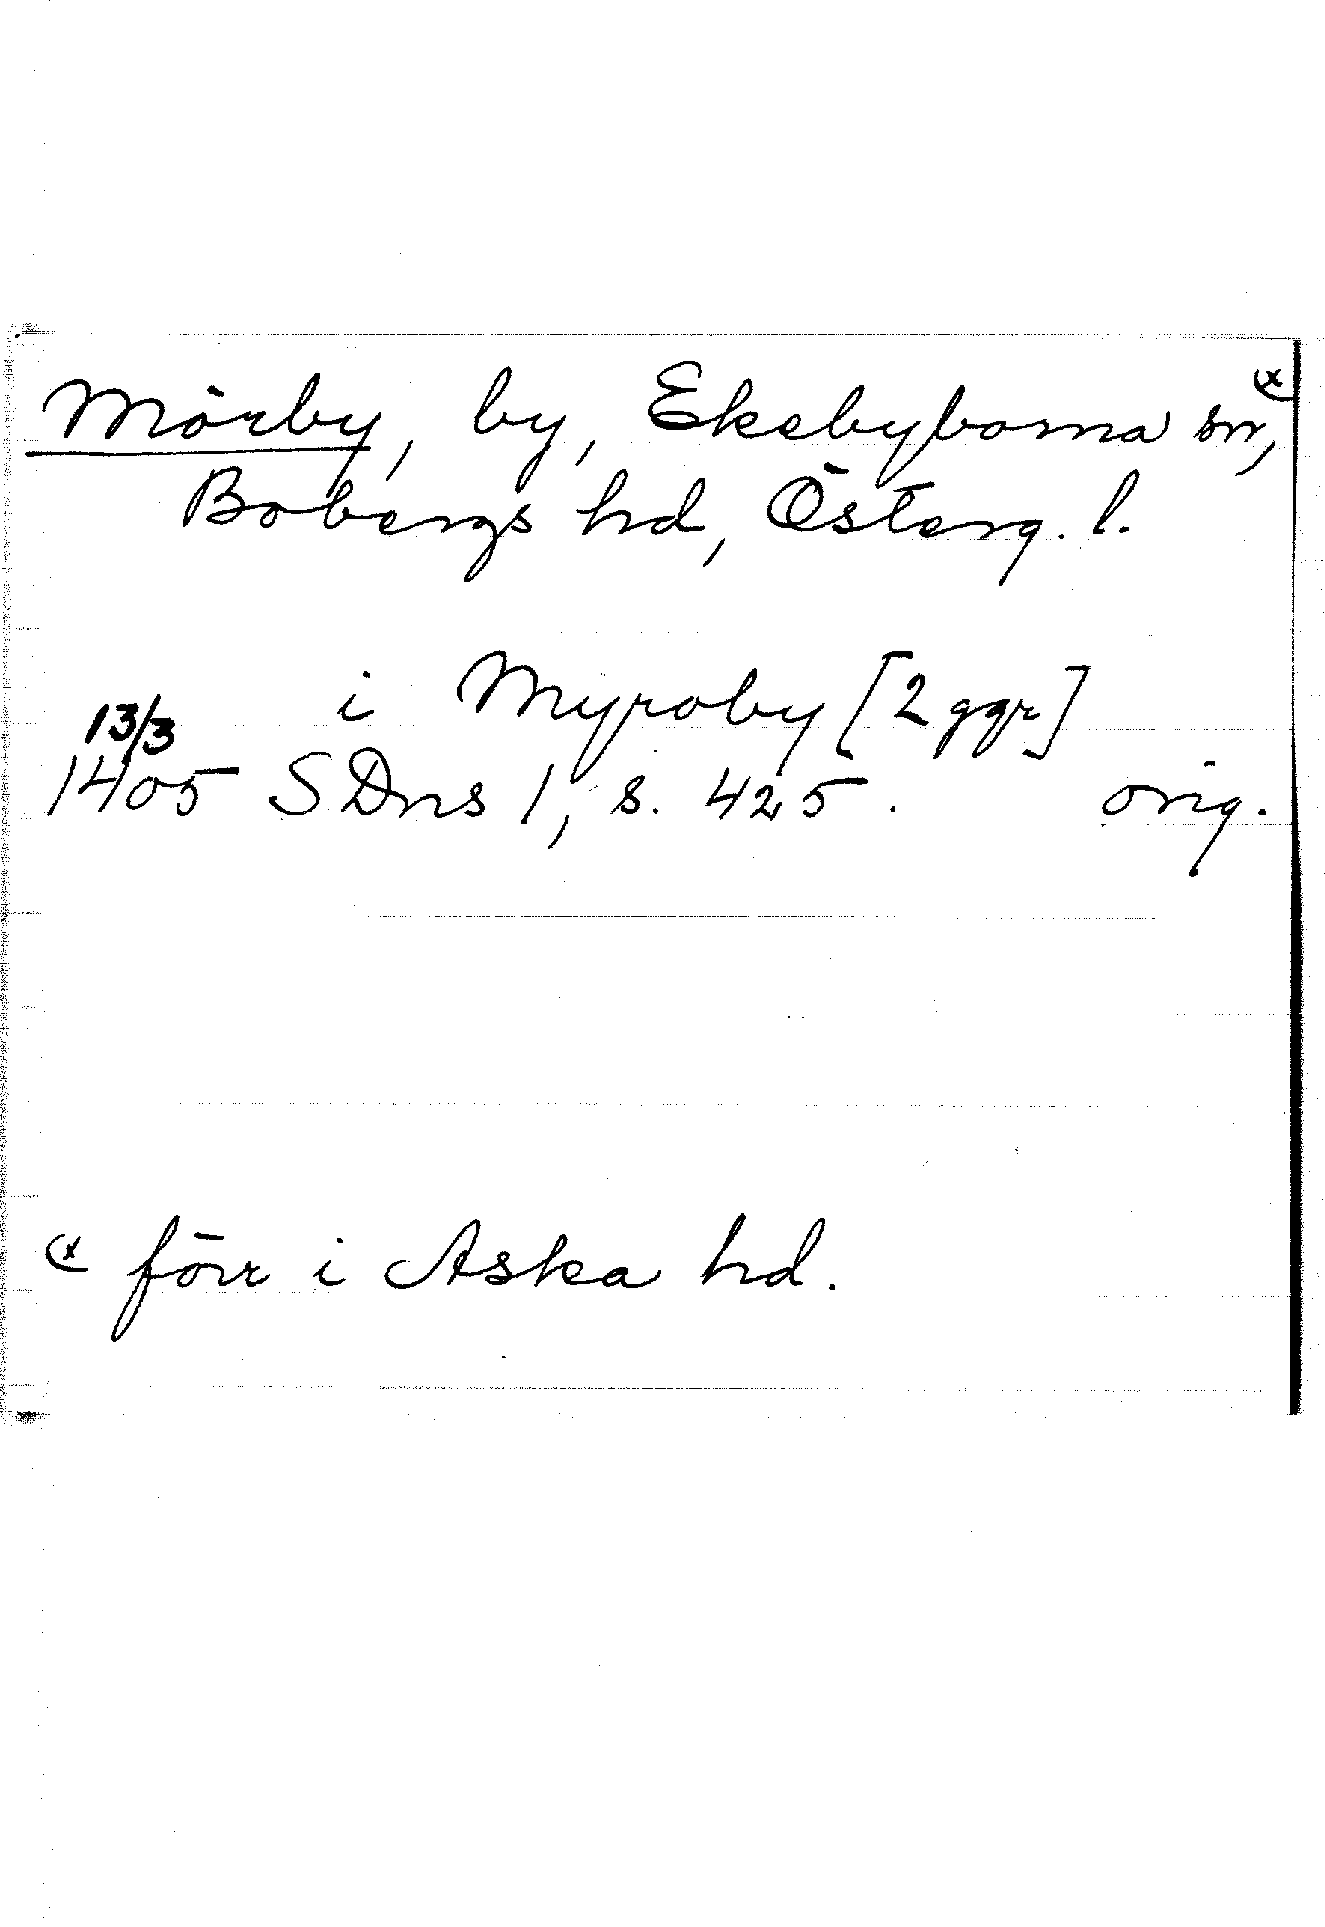 Mörby, by, Ekebyborna sn, (x
Bobergs hd, Österg. l.
i Myroby [2 ggr]
13/3
1405 SDns 1, s. 425. orig.
(x förr i Aska hd.